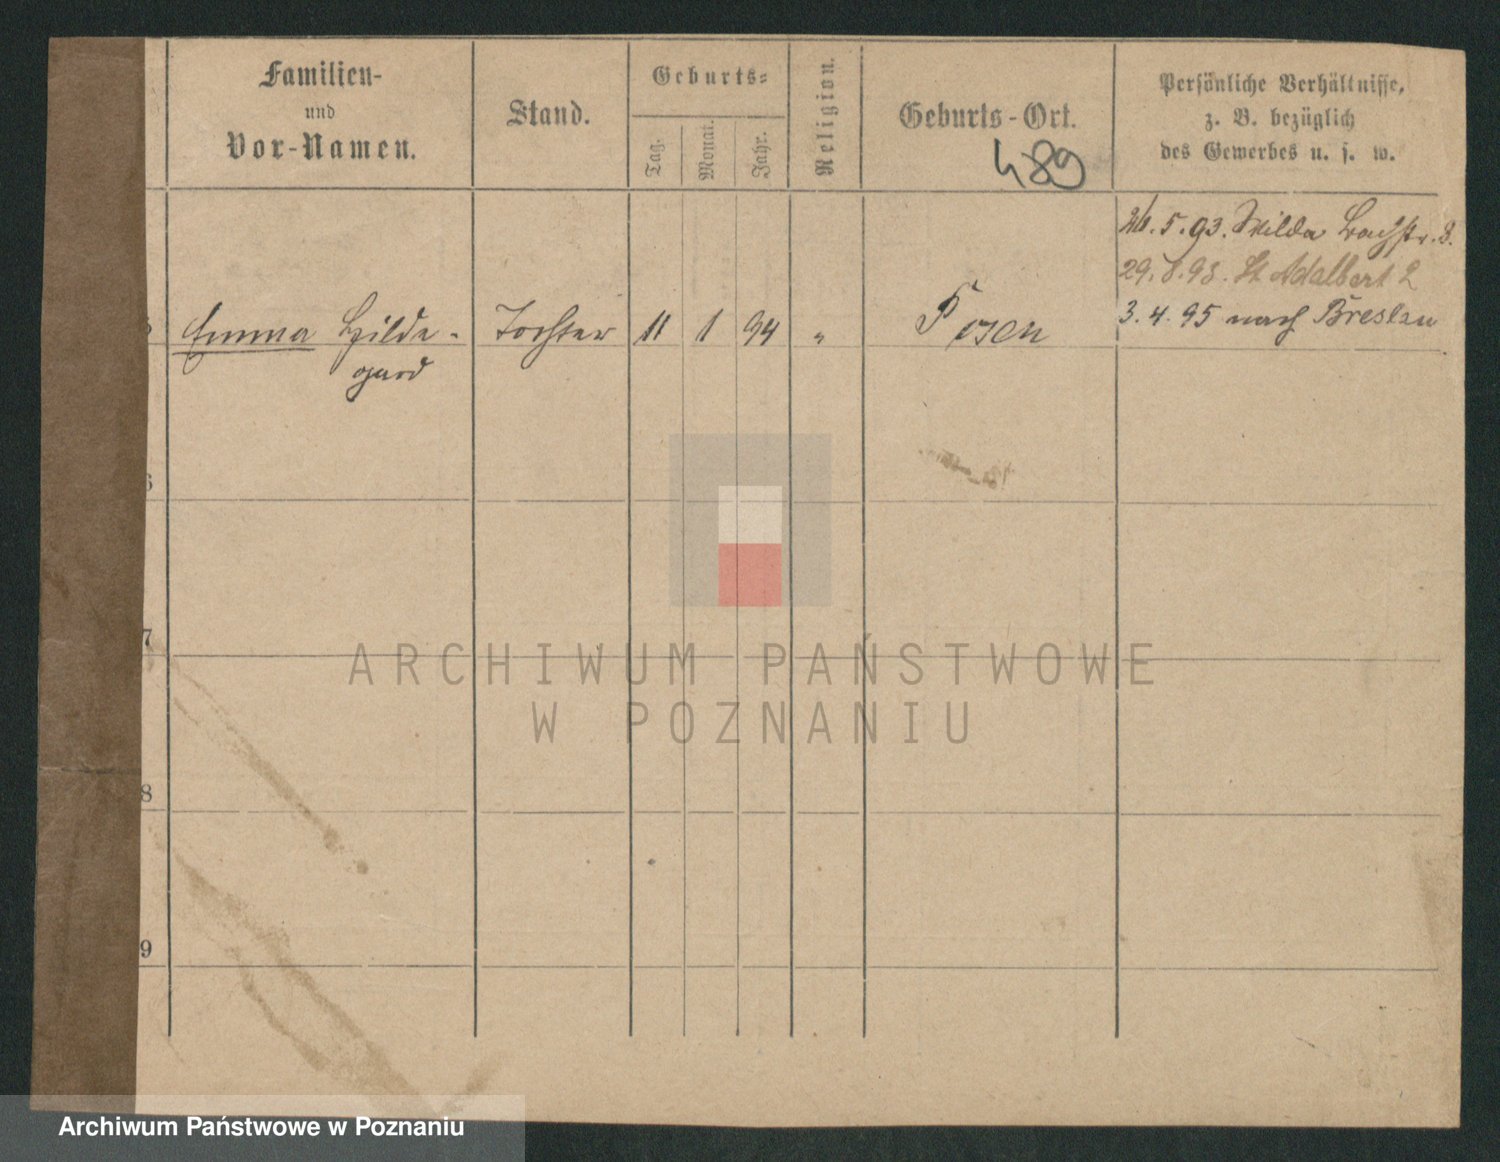 Familien-
und
Vor-Namen.
Stand.
Geburts-
Tag.
Monat.
Jahr.
Religion.
Geburts-Ort.
489
Persönliche Verhältnisse,
z. B. bezüglich
des Gewerbes u. s. w.
5. 93. Wilda Bachstr. 3.
29. 93. St Adalbert 2
3. 4. 95 nach Breslau
Emma Hilde-
gard
Tochter 11 1 94 " Posen
6
7
ARCHIWUM PAŃSTWOWE
W POZNANIU
8
9
Archiwum Państwowe w Poznaniu